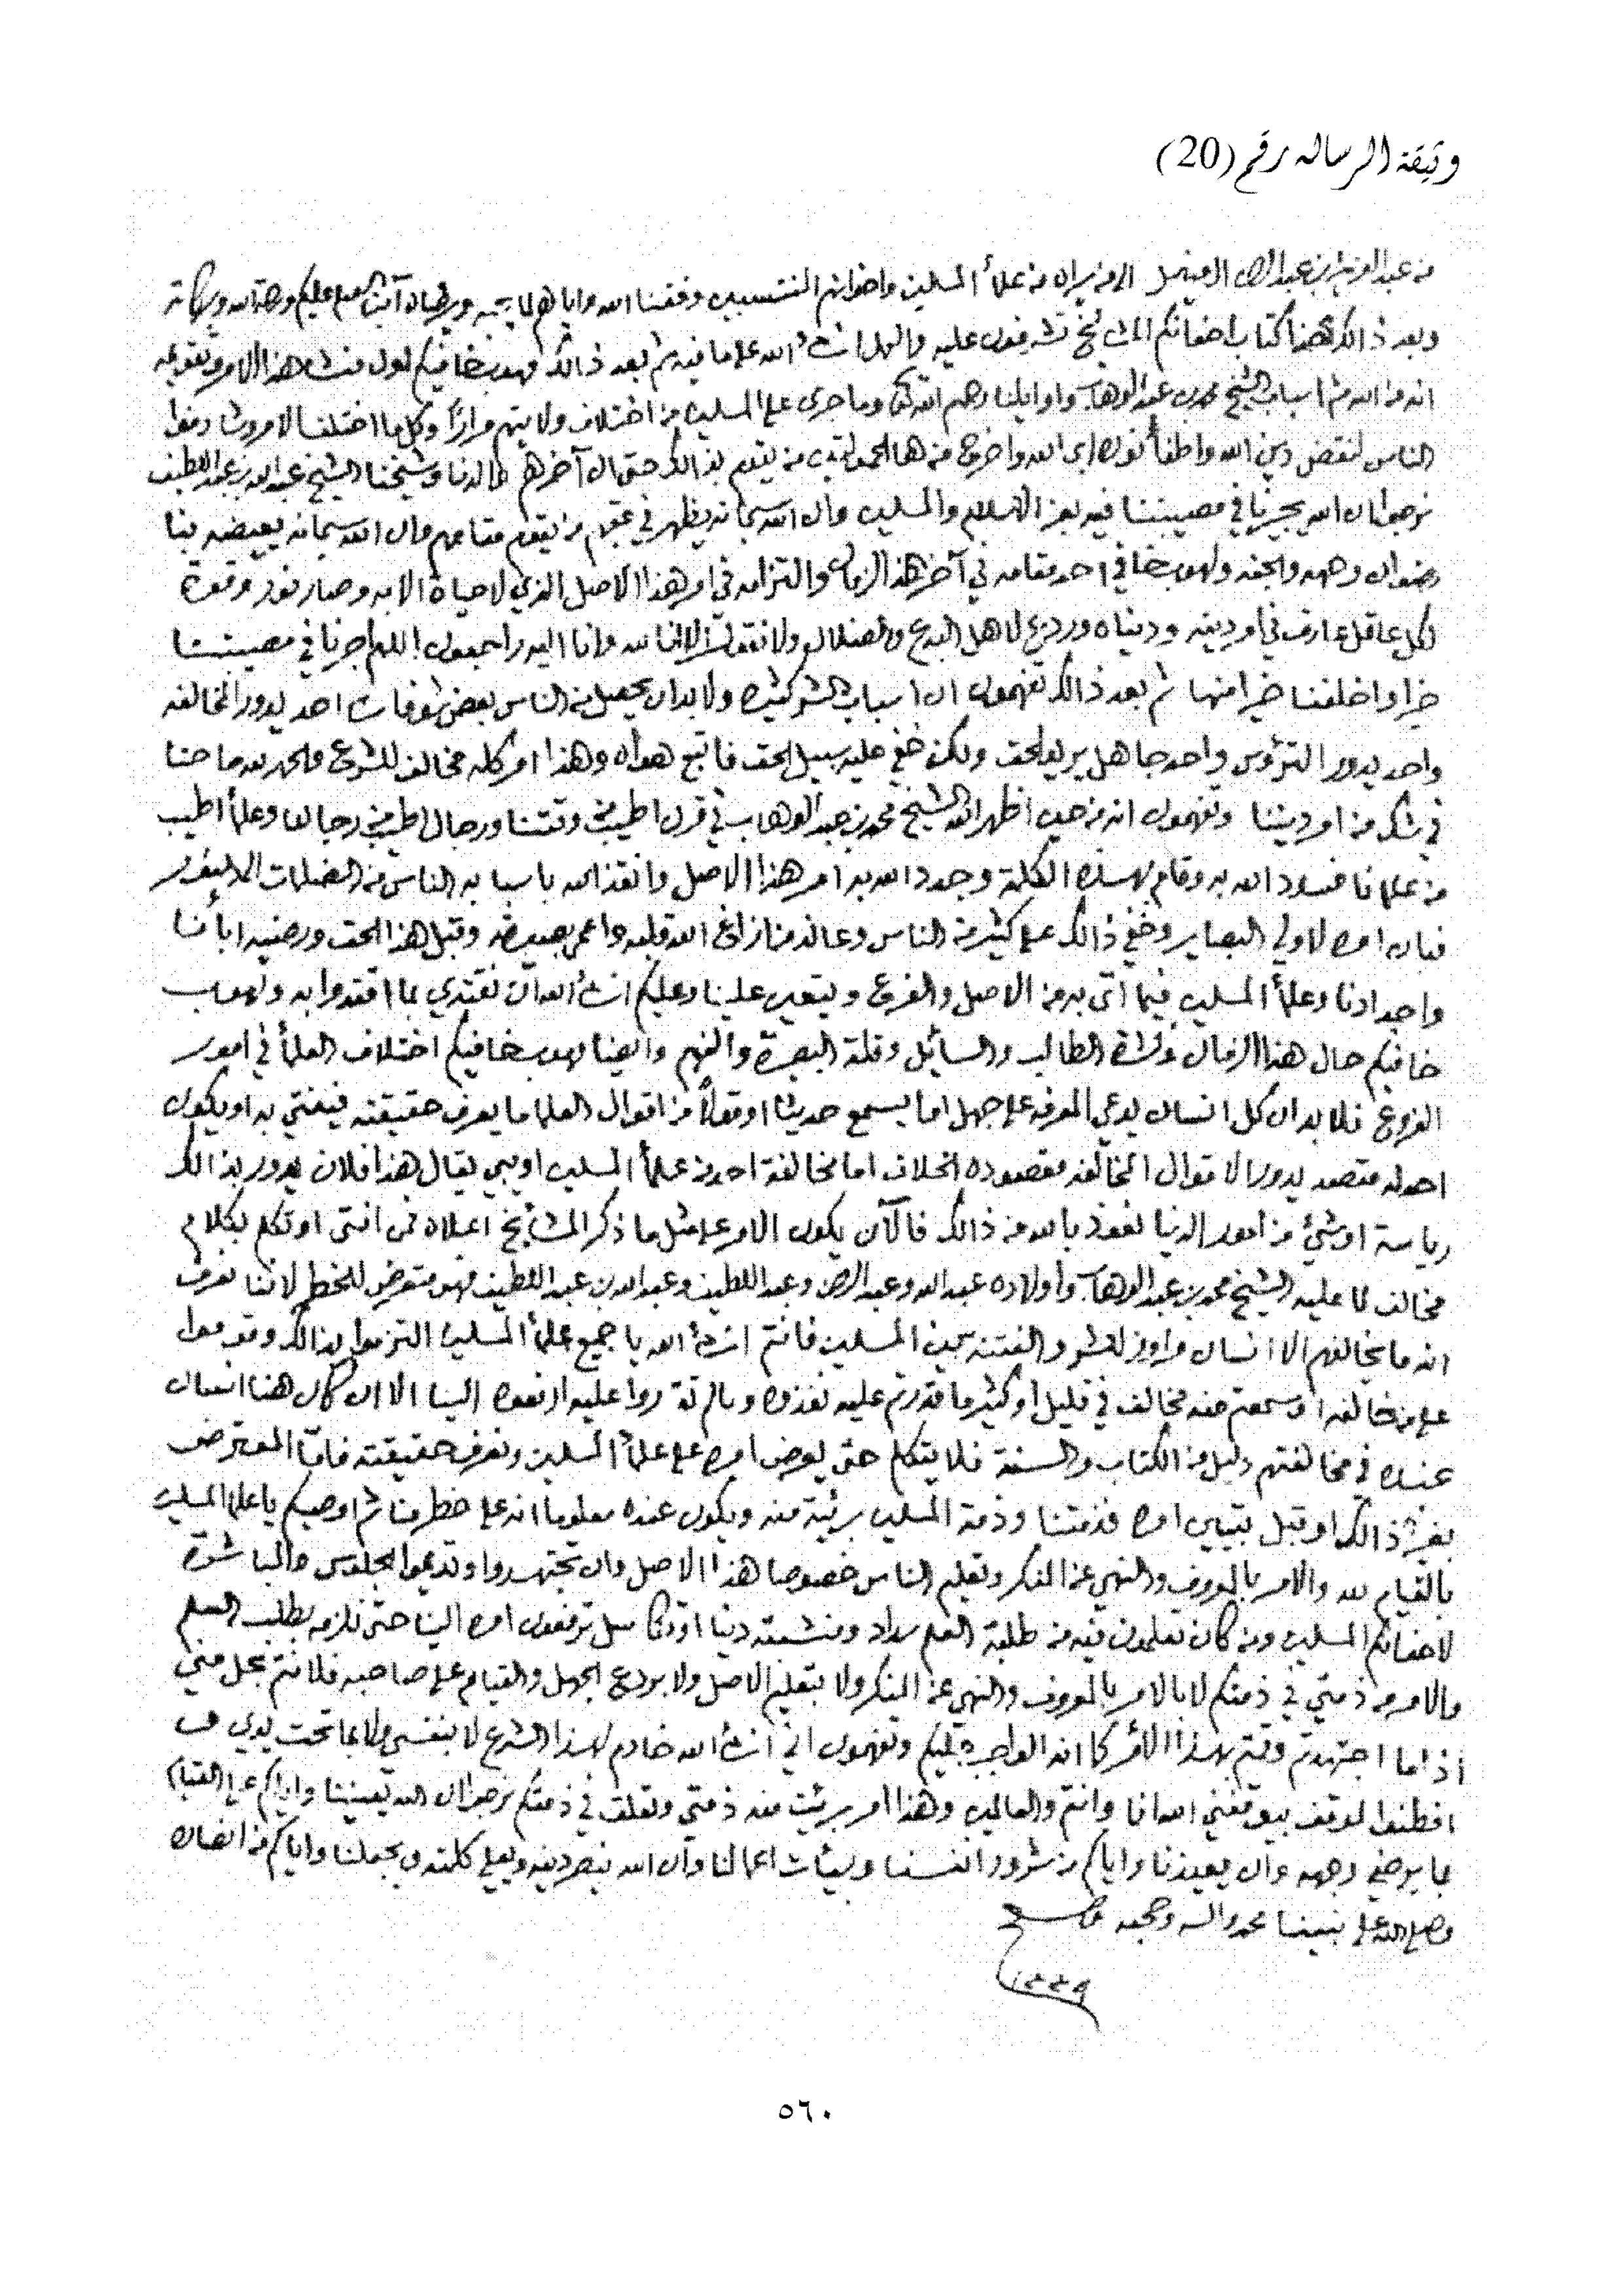 وثيقة الرساله رقم (20)
من عبدالعزيز بن عبدالرحمن الفيصل الى من يراه من علمأ المسلمين واخوانهم المنتسبين وفقنا الله واياهم لما يحبه ويرضاه آمين السلام عليكم ورحمة الله وبركاته
وبعد ذالك هذا كتاب اخوانكم المشايخ تشرفون عليه والعمل انشأ الله على ما فيه ثم بعد ذالك مهوب خافيكم اول منشا هذا الامر وتقويمه
انه من الله ثم اسباب الشيخ محمد بن عبدالوهاب واوايلنا رحمهم الله وما جرى على المسلمين من اختلاف ولايتهم مرارًا وكل ما اختلف الامر وشارفوا
الناس لنقض دين الله واطفأ نوره ابى الله واخرج من هالحمولتين من يقوم بذالك حتى ان آخرهم والدنا وشيخنا الشيخ عبدالله بن عبداللطيف
نرجوا ان الله يجبرنا في مصيبتنا فيه بعز الاسلام والمسلمين وان الله سبحانه يظهر في عقبهم من يقوم مقامهم وان الله سبحانه يعيضه بنا
رضوان وجهه والجنه ولهوب خافي احد مقامه في آخر هذا الزمان والتزامه في امر هذا الاصل الذي لا حياة الا به وصار نور وقوة
لكل عاقل عارف في امر دينه ودنياه وردع لاهل البدع والضلال ولا نقول الا انا لله وانا اليه راجعون اللهم اجرنا في مصيبتنا
خيرا واخلفنا خيرا منها ثم بعد ذالك تفهمون ان اسباب الشر كثيره ولا بد ان يحصل من الناس بعض شوفات احد يدور المخالفه
واحد يدور الترؤس واحد جاهل يريد الحق ولكن خفي عليه سبيل الحق فاتبع هواه وهذا امر كله مخالف للشرع والحمد لله ما حنا
في شك من امر ديننا وتفهمون انه من حين اظهر الله الشيخ محمد بن عبدالوهاب في قرن اطيب من وقتنا ورجال اطيب من رجالنا وعلمأ اطيب
من علمانا فسدد الله به وقام بهذه الكلمة وجدد الله به امر هذا الاصل وانقذ الله باسبابه الناس من الضلمات الى النور
فبان امره لاولي البصاير وخفي ذالك على كثير من الناس وعاند من ازاغ الله قلبه واعمى بصيرته وقبل هذا الحق ورضيه ابأنا
واجدادنا وعلمأ المسلمين فيما اتى به من الاصل والفرع ويتعين علينا وعليكم انشأ الله ان نقتدي بما اقتدوا به ولهوب
خافيكم حال هذا الزمان وكثرة الطالب والسائل وقلة البصيرة والفهم وايضا مهوب خافيكم اختلاف العلمأ في امور
الفروع فلا بد ان كل انسان يدعي المعرفه على جهل اما يسمع حديثا او قولاً من اقوال العلما ما يعرف حقيقته فيفتي به او يكون
احد له مقصد يدور الاقوال المخالفه مقصوده الخلاف اما مخالفة احد من علمأ المسلمين او يبي يقال هذا فلان يدور بذالك
رياسة او شيئ من أمور الدنيا نعوذ بالله من ذالك فالآن يكون الامر على مثل ما ذكر المشأيخ اعلاه فمن افتى او تكلم بكلام
مخالف لما عليه الشيخ محمد بن عبدالوهاب وأولاده عبدالله وعبدالرحمن وعبداللطيف وعبدالله بن عبداللطيف فهو متعرض للخطر لاننا نعرف
انه ما يخالفهم الا انسان مراوز للشر والفتنة بين المسلمين فانتم انشأ الله يا جميع علمأ المسلمين التزموا بذالك وقوموا
على من خالفه او سمعتم منه مخالف في قليل او كثير ما قدرتم عليه نفذوه وما لم تقدروا عليه ارفعوه الينا الا ان كان هنا انسان
عنده في مخالفتهم دليل من الكتاب والسنة فلا يتكلم حتى يعرض امره على علمأ المسلمين ونعرف حقيقته فامّا المعترض
بغير ذالك او قبل تبيين امره فذمتنا وذمة المسلمين بريئة منه ويكون عنده معلوما انه على خطر منا ثم اوصيكم يا علما المسلمين
بالقيام لله والامر بالمعروف والنهي عن المنكر وتعليم الناس خصوصا هذا الاصل وان تجتهدوا وتديموا الجلوس والمباشرة
لاخوانكم المسلمين ومن كان تعلمون فيه من طلبة العلم سداد ومنشحته دنيا او تكاسل ترفعون امره الينا حتى نلزمه بطلب العلم
والامر من ذمتي في ذمتكم لا بالامر بالمعروف والنهي عن المنكر ولا بتعليم الاصل ولا بردع الجهل والقيام على صاحبه فلا نتم بحل مني
أذا ما اجتهدتم وقمتم بهذا الأمر كما انه الواجب عليكم وتفهمون اني انشأ الله خادم لهذا الشرع لا بنفسي ولا بما تحت يدي ف
افطنوا لموقف بيوقفني الله انا وانتم والعالمين وهذا امر برئيت منه ذمتي وتعلق في ذمتكم نرجوا ان الله يعيننا واياكم على القيام
بما يرضي وجهه وأن يعيذنا واياكم من شرور انفسنا وسيئات اعمالنا وأن الله ينصر دينه ويعلي كلمته ويجعلنا واياكم من انصاره
وصلى الله على نبينا محمد واله وصحبه وسلم
١٣٣٩
٥٦٠